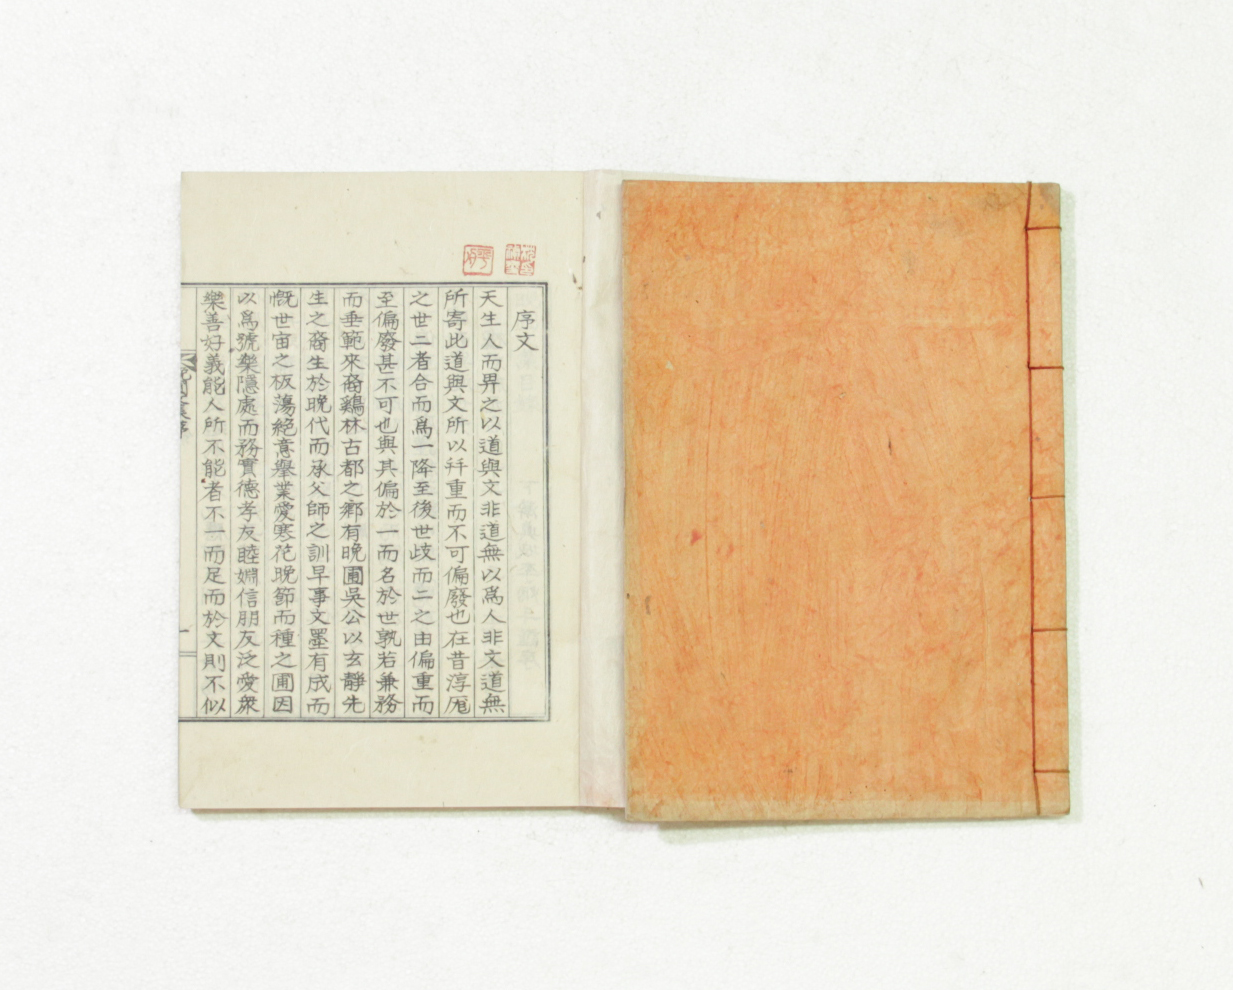 序文
天生人而畀之以道與文非道無以爲人非文道無
所寄此道與文所以幷重而不可偏廢也在昔淳厖
之世二者合而爲一降至後世歧而二之由偏重而
至偏廢甚不可也與其偏於一而名於世孰若兼務
而垂範來裔鷄林古都之鄕有晩圃吳公以玄靜先
生之裔生於晩代而承父師之訓早事文墨有成而
慨世宙之板蕩絕意擧業愛寒花晩節而種之圃因
以爲號樂隱處而務實德孝友睦婣信朋友泛愛衆
樂善好義能人所不能者不一而足而於文則不似